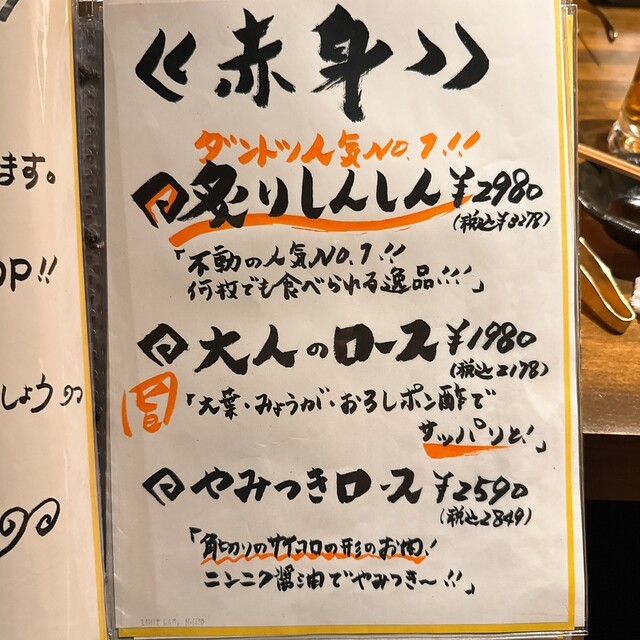 ます。
OP!!
しょう
《赤身》
ダントツ人気NO.1!!
炙りしんしん ¥2980
(税込¥3278)
「不動の人気NO.1!!
何枚でも食べられる逸品!!!」
大人のロース ¥1980
(税込2178)
「大葉・みょうが・おろしポン酢で
サッパリと!」
やみつきロース ¥2590
(税込2849)
「角切りのサイコロの形のお肉!
ニンニク醤油でやみつき〜!!」